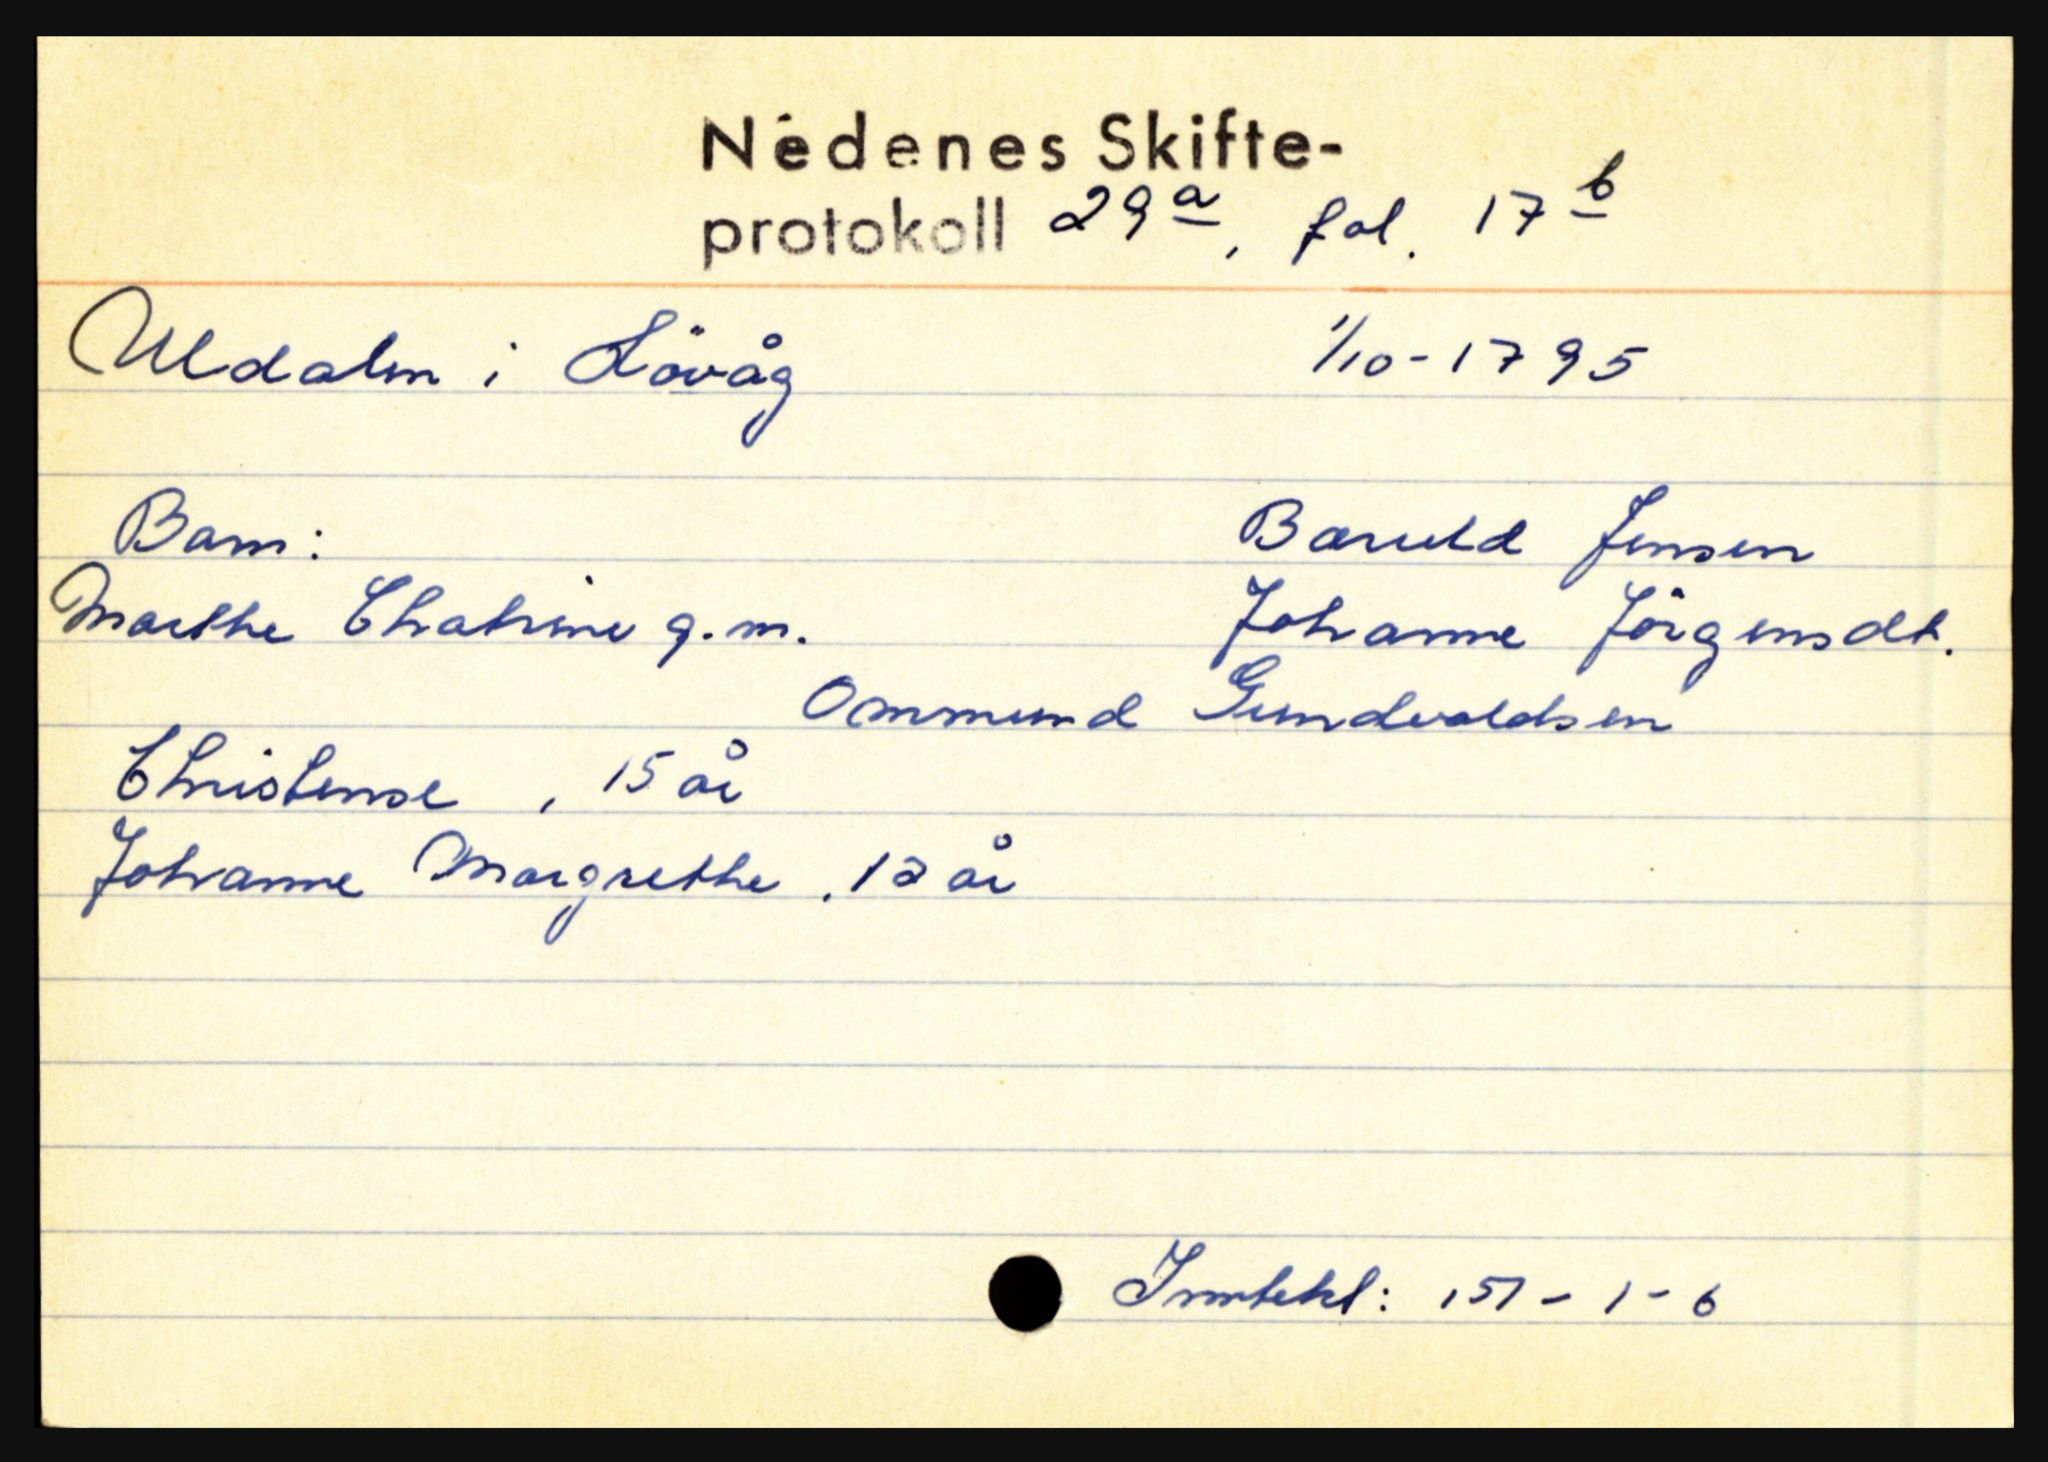 Nedenes Skifte-
protokoll 29a, fol. 17b
Uldalen i Hövåg 1/10-1795
Barn: Baruld Jensen
Marthe Chatrine g.m. Johanne Jörgensdt.
Ommund Gundvaldsen
Christense, 15 år
Johanne Margrethe, 12 år
Inntekt: 151-1-6